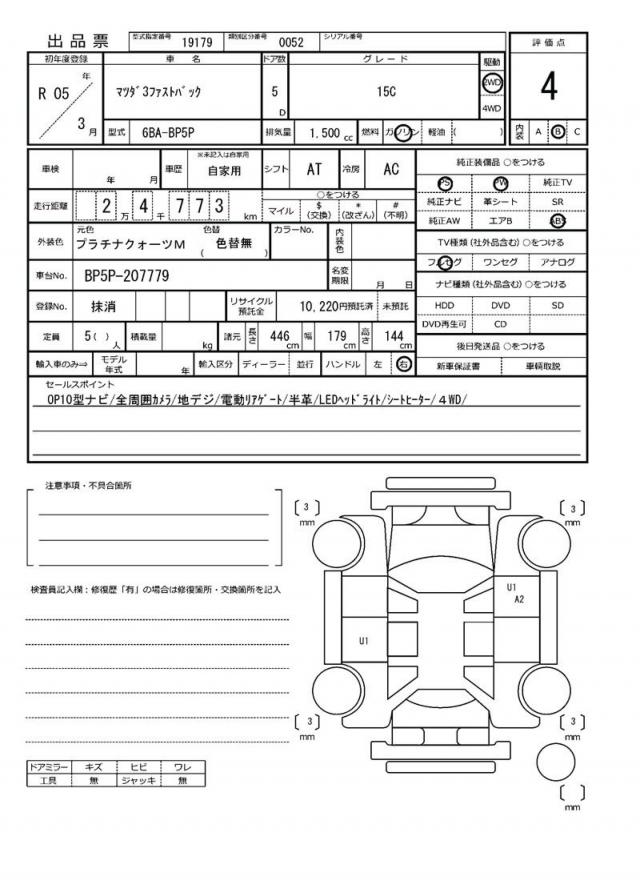 出品票 型式指定番号 19179 類別区分番号 0052 シリアル番号
初年度登録 車 名 ドア数 グレード 駆動 評価点
R 05 年 3 月 ﾏﾂﾀﾞ3ﾌｧｽﾄﾊﾞｯｸ 5 D 15C 2WD 4WD 4
型式 6BA-BP5P 排気量 1,500 cc 燃料 ガソリン 軽油 ( ) 内装 A B C
車検 年 月 車歴 ※未記入は自家用 自家用 シフト AT 冷房 AC 純正装備品 ○をつける
PS PW 純正TV
走行距離 2 万 4 千 7 7 3 km ○をつける
マイル $ (交換) * (改ざん) # (不明)
純正ナビ 革シート SR
純正AW エアB ABS
外装色 元色 プラチナクォーツM 色替 ( 色替無 ) カラーNo. 内装色
TV種類 (社外品含む) ○をつける
フルセグ ワンセグ アナログ
車台No. BP5P-207779 名変期限 月 日
ナビ種類 (社外品含む) ○をつける
登録No. 抹消 リサイクル預託金 10,220円預託済 未預託
HDD DVD SD
DVD再生可 CD
定員 5( ) 人 積載量 kg 諸元 長さ 446 cm 幅 179 cm 高さ 144 cm
後日発送品 ○をつける
輸入車のみ⇒ モデル年式 年 輸入区分 ディーラー 並行 ハンドル 左 右
新車保証書 車輌取説
セールスポイント
OP10型ナビ/全周囲ｶﾒﾗ/地デジ/電動ﾘｱｹﾞｰﾄ/半革/LEDﾍｯﾄﾞﾗｲﾄ/ｼｰﾄﾋｰﾀｰ/４WD/
注意事項・不具合箇所
検査員記入欄：修復歴「有」の場合は修復箇所・交換箇所を記入
[ 3 ] mm
[ 3 ] mm
U1
A2
U1
[ 3 ] mm
[ 3 ] mm
[ ] mm
ドアミラー キズ ヒビ ワレ
工具 無 ジャッキ 無